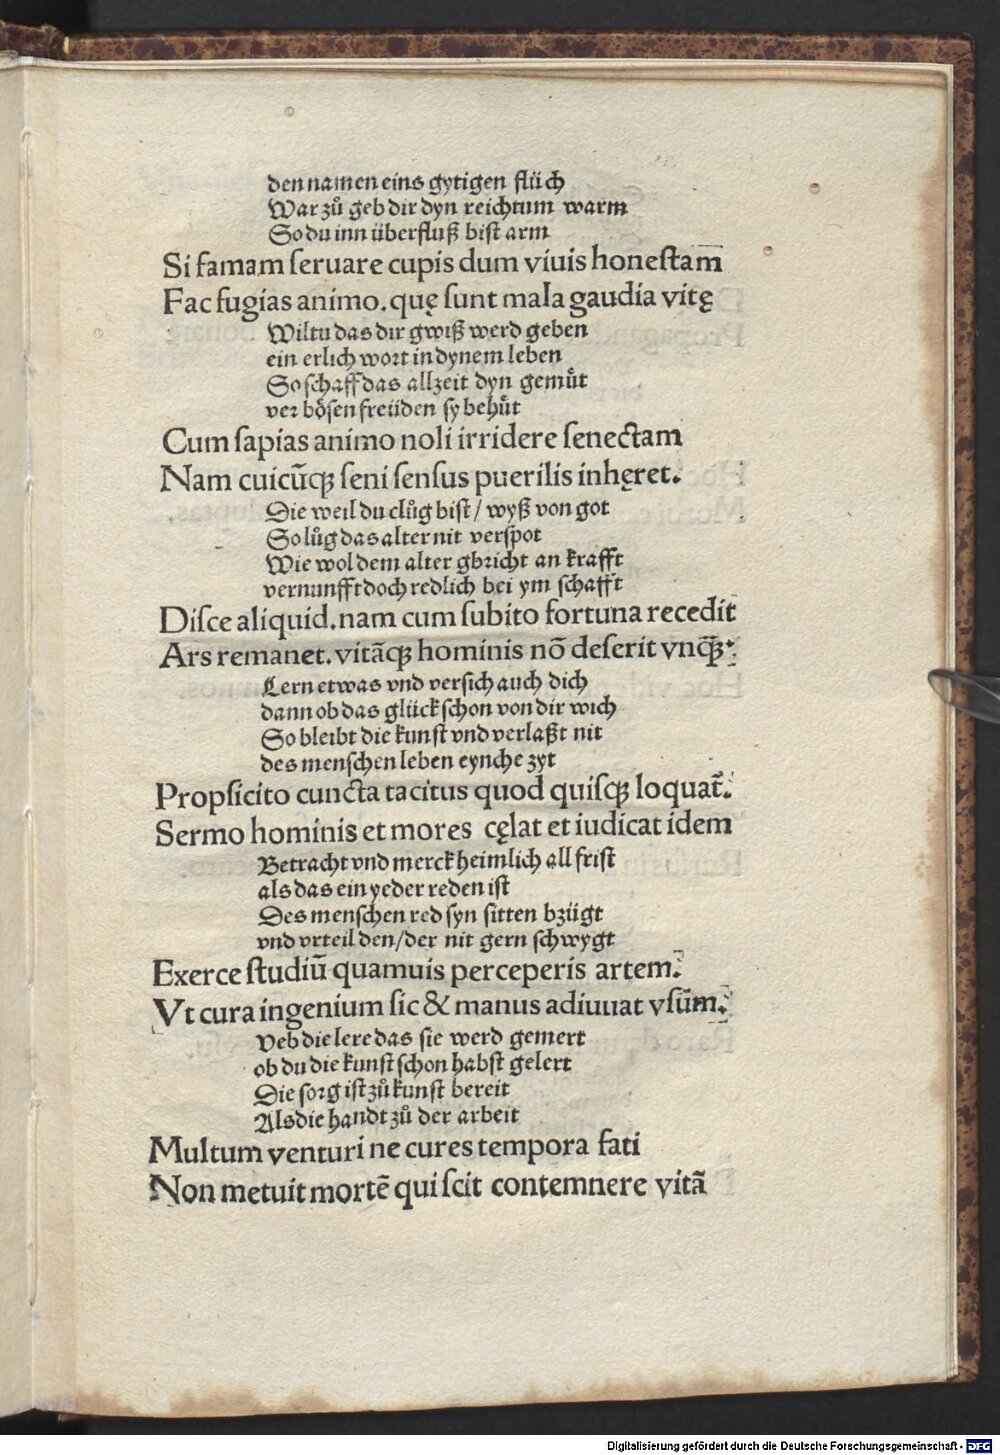 den namen eins gytigen flüch
War zů geb dir dyn reichtum warm
So du inn überfluß bist arm
Si famam ſeruare cupis dum viuis honeſtam̅
Fac fugias animo. quę ſunt mala gaudia vitę
Wiltu das dir gwiß werd geben
ein erlich wort in dynem leben
So schaff das allzeit dyn gemůt
ver bösen freüden sy behůt
Cum ſapias animo noli irridere ſenectam
Nam cuicūqꝫ ſeni ſenſus puerilis inhęret.
Die weil du clůg bist / wyß von got
So lůg das alter nit verspot
Wie wol dem alter gbricht an krafft
vernunfft doch redlich bei ym schafft
Diſce aliquid. nam cum ſubito fortuna recedit
Ars remanet. vitāqꝫ hominis nō deſerit vnqꝫ̄.
Lern etwas vnd versich auch dich
dann ob das glück schon von dir wich
So bleibt die kunst vnd verlaßt nit
des menschen leben eynche zyt
Propſicito cuncta tacitus quod quiſqꝫ loquat̄.
Sermo hominis et mores cęlat et iudicat idem
Betracht vnd merck heimlich all frist
als das ein yeder reden ist
Des menschen red syn sitten bzügt
vnd vrteil den / der nit gern schwygt
Exerce ſtudiū quamuis perceperis artem.
Vt cura ingenium ſic & manus adiuuat vſūm.
Veb die lere das sie werd gemert
ob du die kunst schon habst gelert
Die sorg ist zů kunst bereit
Als die handt zů der arbeit
Multum venturi ne cures tempora fati
Non metuit mortē qui ſcit contemnere vitā
Digitalisierung gefördert durch die Deutsche Forschungsgemeinschaft - DFG